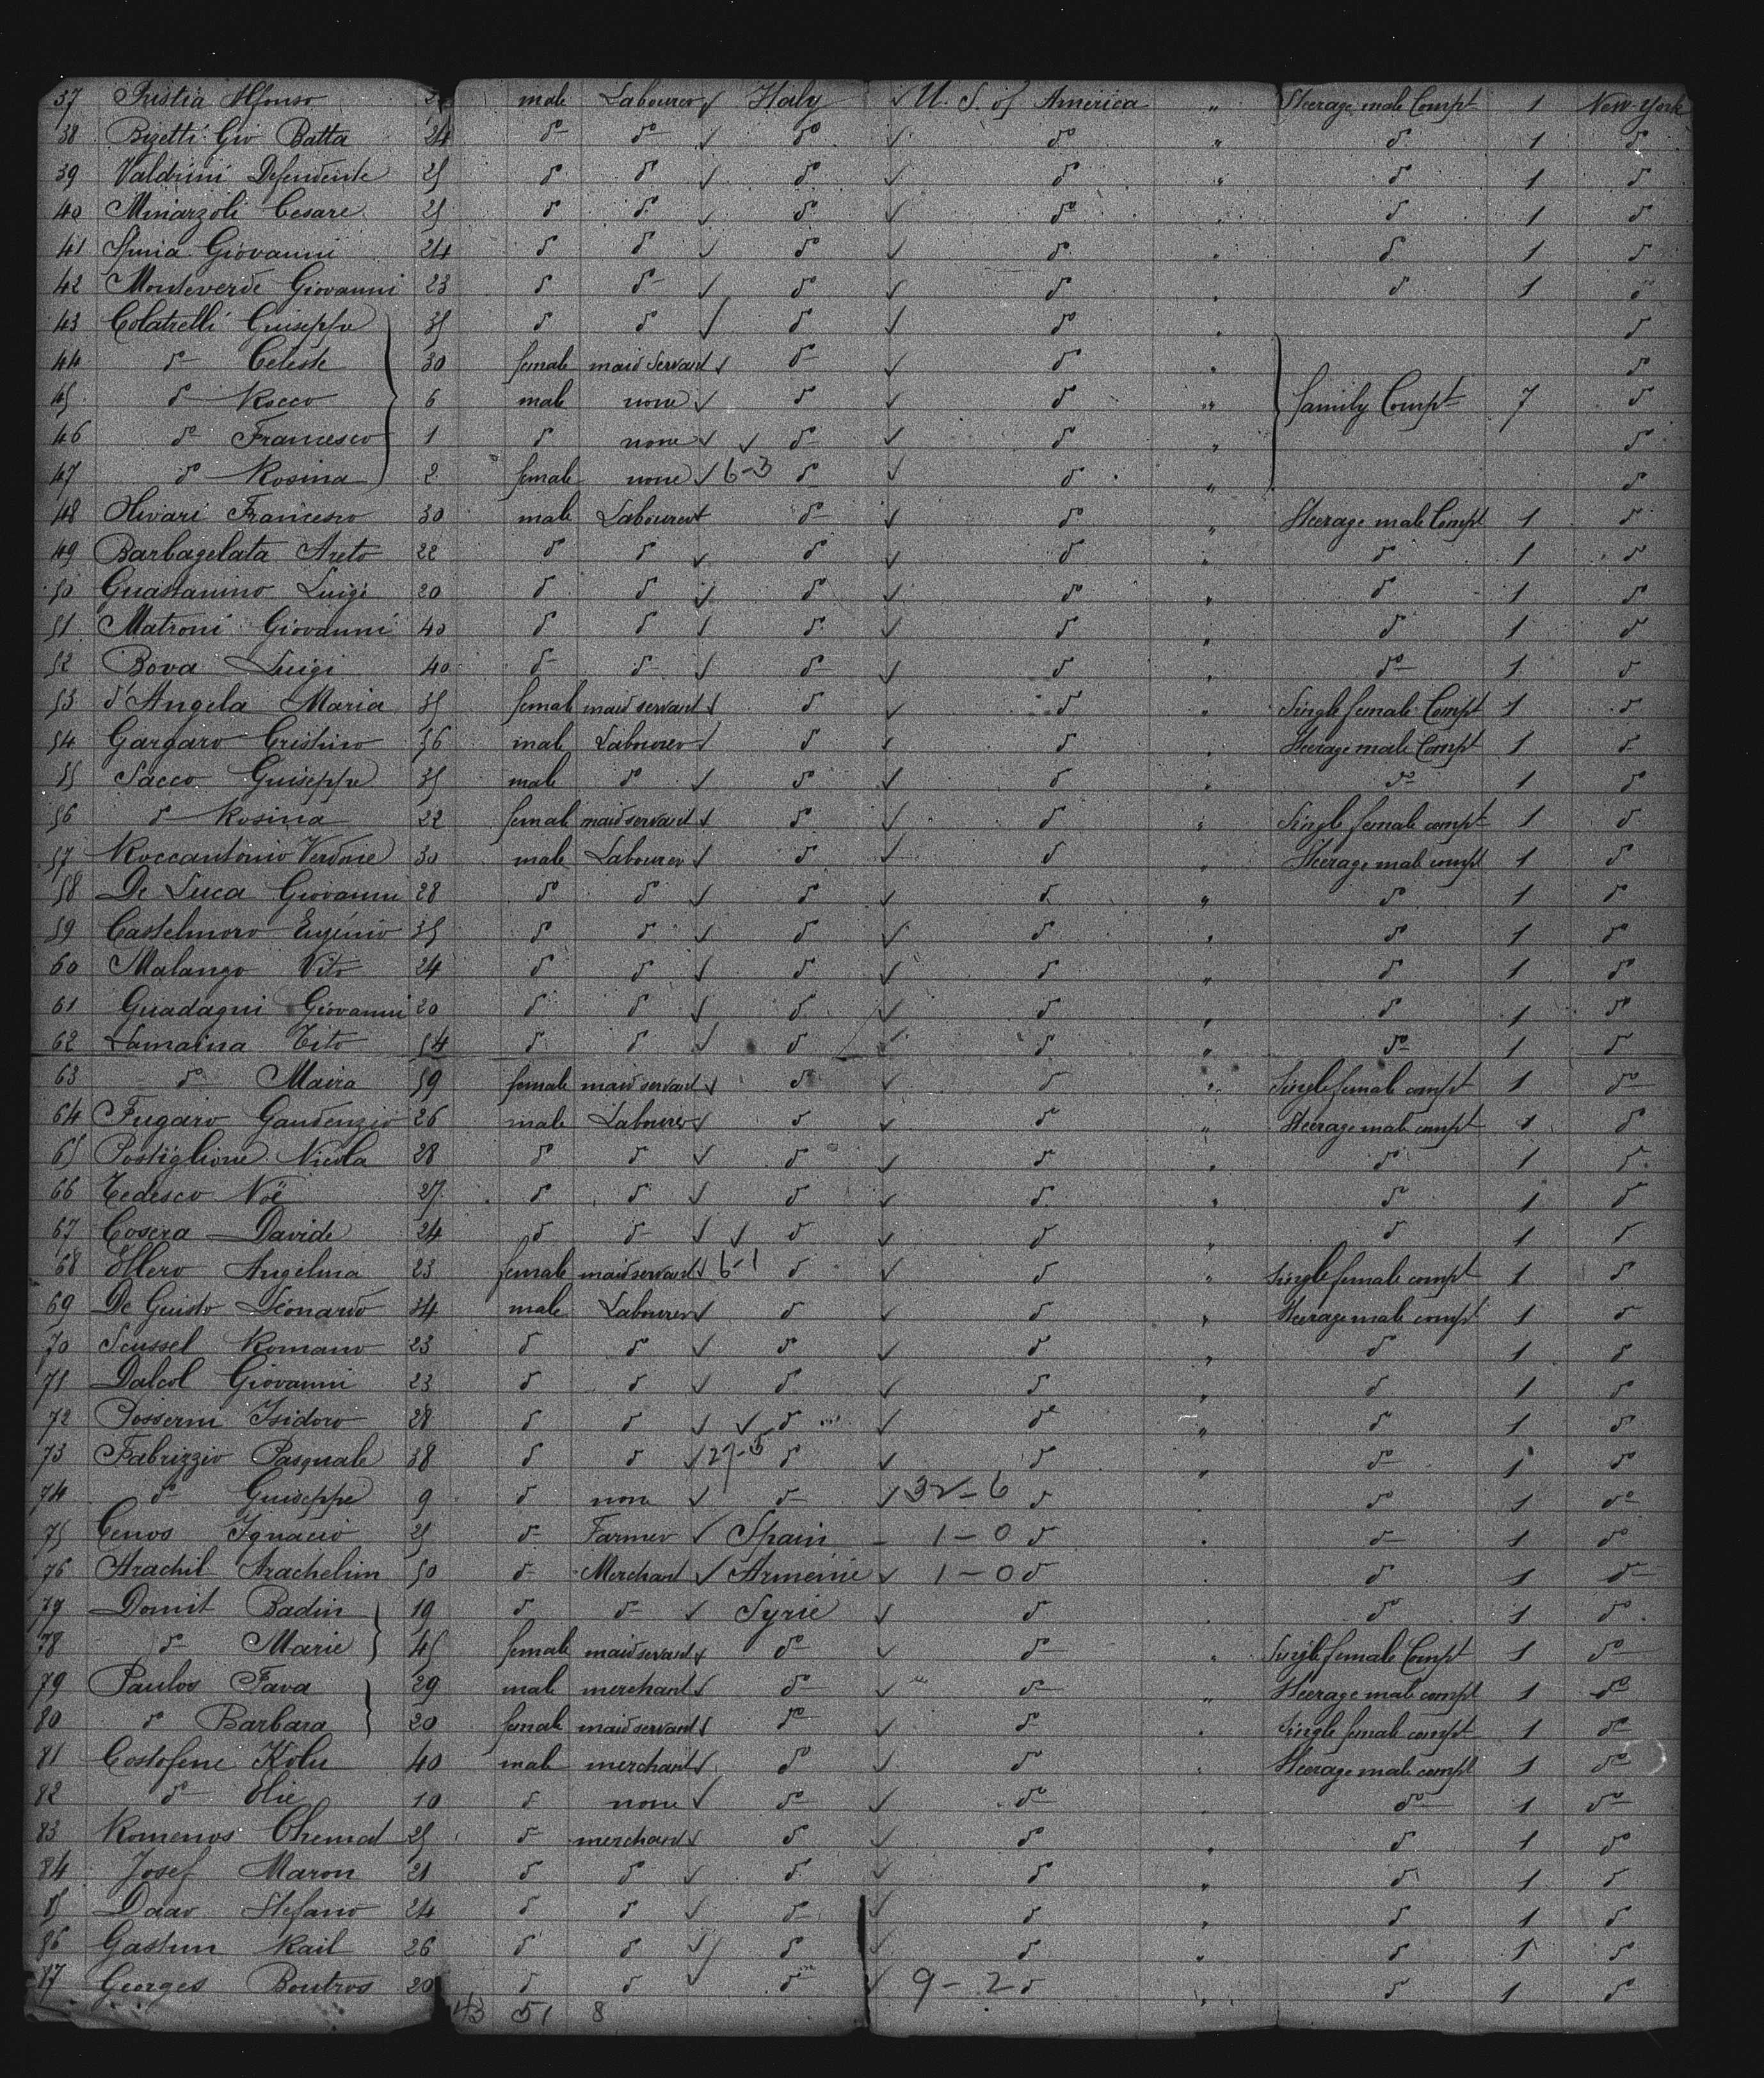 37 Alfonso male Labourer √ Italy √ U. S. of America " Steerage male Compt 1 New-York
38 Bizetti Gio Batta 24 do do √ do √ do " do 1 do
39 Valdrini Defendente 25 do do √ do √ do " do 1 do
40 Minarzoli Cesare 25 do do √ do √ do " do 1 do
41 Giovanni 24 do do √ do √ do " do 1 do
42 Monteverde Giovanni 23 do do √ do √ do " do 1 do
43 Colatrelli Guiseppe 35 do do √ do √ do " do
44 do Celeste 30 female maid servant √ do √ do " do
45 do Rocco 6 male none √ do √ do " family Compt 7 do
46 do Francesco 1 do none √ √ do √ do " do
47 do Rosina 2 female none √ 6-3 do √ do " do
48 Olivari Francesco 30 male Labourer √ do √ do " Steerage male Compt 1 do
49 Barbagelata Areto 22 do do √ do √ do " do 1 do
50 Guastanino Luigi 20 do do √ do √ do " do 1 do
51 Matroni Giovanni 40 do do √ do √ do " do 1 do
52 Bova Luigi 40 do do √ do √ do " do 1 do
53 d'Angela Maria 35 female maid servant √ do √ do " Single female Compt 1 do
54 Gargaro Cristino 56 male Labourer √ do √ do " Steerage male Compt 1 do
55 Sacco Guiseppe 35 male do √ do √ do " do 1 do
56 do Rosina 22 female maid servant √ do √ do " Single female compt 1 do
57 Roccantonio Verdone 30 male Labourer √ do √ do " Steerage male compt 1 do
58 De Luca Giovanni 28 do do √ do √ do " do 1 do
59 Castelmoro Eugénio 35 do do √ do √ do " do 1 do
60 Malango Vito 24 do do √ do √ do " do 1 do
61 Guadagni Giovanni 20 do do √ do √ do " do 1 do
62 Lamaina Tito 54 do do √ do √ do " do 1 do
63 do Maira 59 female maid servant √ do √ do " Single female compt 1 do
64 Fugaro Gaudenzio 26 male Labourer √ do √ do " Steerage male compt 1 do
65 Postiglione Nicola 28 do do √ do √ do " do 1 do
66 Tedesco Noë 27 do do √ do √ do " do 1 do
67 Cosera Davide 24 do do √ √ do √ do " do 1 do
68 Ellero Angelina 23 female maid servant √ 6-1 do √ do " Single female compt 1 do
69 De Guido Léonardo 34 male Labourer √ do √ do " Steerage male compt 1 do
70 Scussel Romano 23 do do √ do √ do " do 1 do
71 Dalcol Giovanni 23 do do √ do √ do " do 1 do
72 Posserni Isidoro 28 do do √ √ do √ do " do 1 do
73 Fabrizzio Pasquale 38 do do √ 27-5 do √ do " do 1 do
74 do Guiseppe 9 do none √ do √ 32-6 do " do 1 do
75 Cenos Ignacio 25 do Farmer √ Spain - 1-0 do " do 1 do
76 Arachil Arachelim 50 do Merchant √ Arménie √ 1-0 do " do 1 do
77 Domit Badin 19 do do √ Syrie √ do " do 1 do
78 do Marie 45 female maid servant √ do √ do " Single female Compt 1 do
79 Paulos Fava 29 male merchant √ do √ do " Steerage male compt 1 do
80 do Barbara 20 female maid servant √ do √ do " Single female compt 1 do
81 Costofene Kolu 40 male merchant √ do √ do " Steerage male compt 1 do
82 do Elie 10 do none √ do √ do " do 1 do
83 Romenos Chemat 25 do merchant √ do √ do " do 1 do
84 Josef Maron 21 do do √ do √ do " do 1 do
85 Daao Stefano 24 do do √ do √ do " do 1 do
86 Gastun Rail 26 do do √ do √ do " do 1 do
87 Georges Boutros 20 do do √ do √ 9-2 do " do 1 do
43 51 8